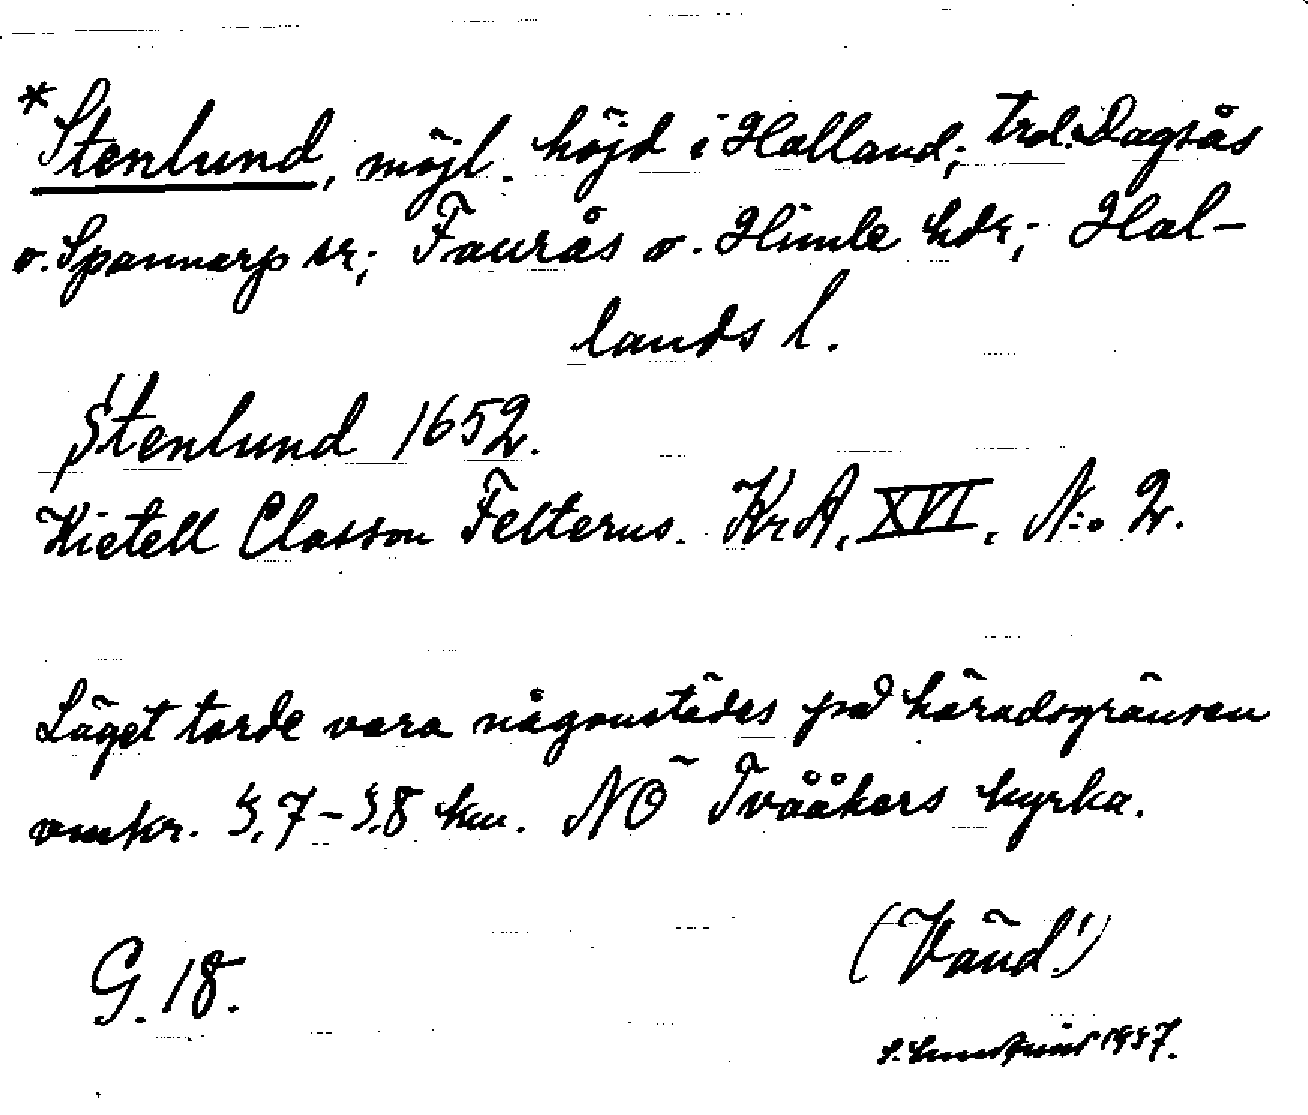 *Stenlund, möjl. höjd i Halland; trol. Dagsås
o. Spannarp sr; Faurås o. Himle hdr; Hal-
lands l.
Stenlund 1652.
Kietell Classon Felterus. KrA, XVI, N:o 2.
Läget torde vara någonstädes på häradsgränsen
omkr. 3,7-3,8 km. NO Tvååkers kyrka.
(Vänd!)
G. 18.
1937.